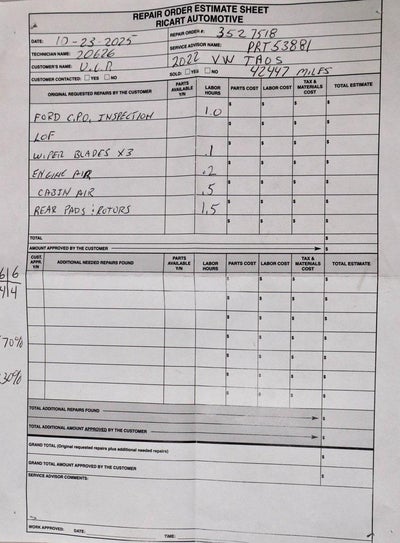 REPAIR ORDER ESTIMATE SHEET
RICART AUTOMOTIVE
DATE: 10-23-2025 REPAIR ORDER #: 3527518
TECHNICIAN NAME: 20626 SERVICE ADVISOR NAME: PRT53881
CUSTOMER'S NAME: U.C.P. 2022 VW TAOS
CUSTOMER CONTACTED: YES NO SOLD: YES NO 42447 MILES
ORIGINAL REQUESTED REPAIRS BY THE CUSTOMER PARTS AVAILABLE Y/N LABOR HOURS PARTS COST LABOR COST TAX & MATERIALS COST TOTAL ESTIMATE
FORD C.P.O. INSPECTION 1.0 $ $ $ $
LOF $ $ $ $
WIPER BLADES X3 .1 $ $ $ $
ENGINE AIR .2 $ $ $ $
CABIN AIR .5 $ $ $ $
REAR PADS : ROTORS 1.5 $ $ $ $
TOTAL $
AMOUNT APPROVED BY THE CUSTOMER $
CUST. APPR. Y/N ADDITIONAL NEEDED REPAIRS FOUND PARTS AVAILABLE Y/N LABOR HOURS PARTS COST LABOR COST TAX & MATERIALS COST TOTAL ESTIMATE
6|6
4|4
70%
30%
TOTAL ADDITIONAL REPAIRS FOUND $
TOTAL ADDITIONAL AMOUNT APPROVED BY THE CUSTOMER $
GRAND TOTAL (Original requested repairs plus additional needed repairs) $
GRAND TOTAL AMOUNT APPROVED BY THE CUSTOMER $
SERVICE ADVISOR COMMENTS:
WORK APPROVED: DATE: TIME: